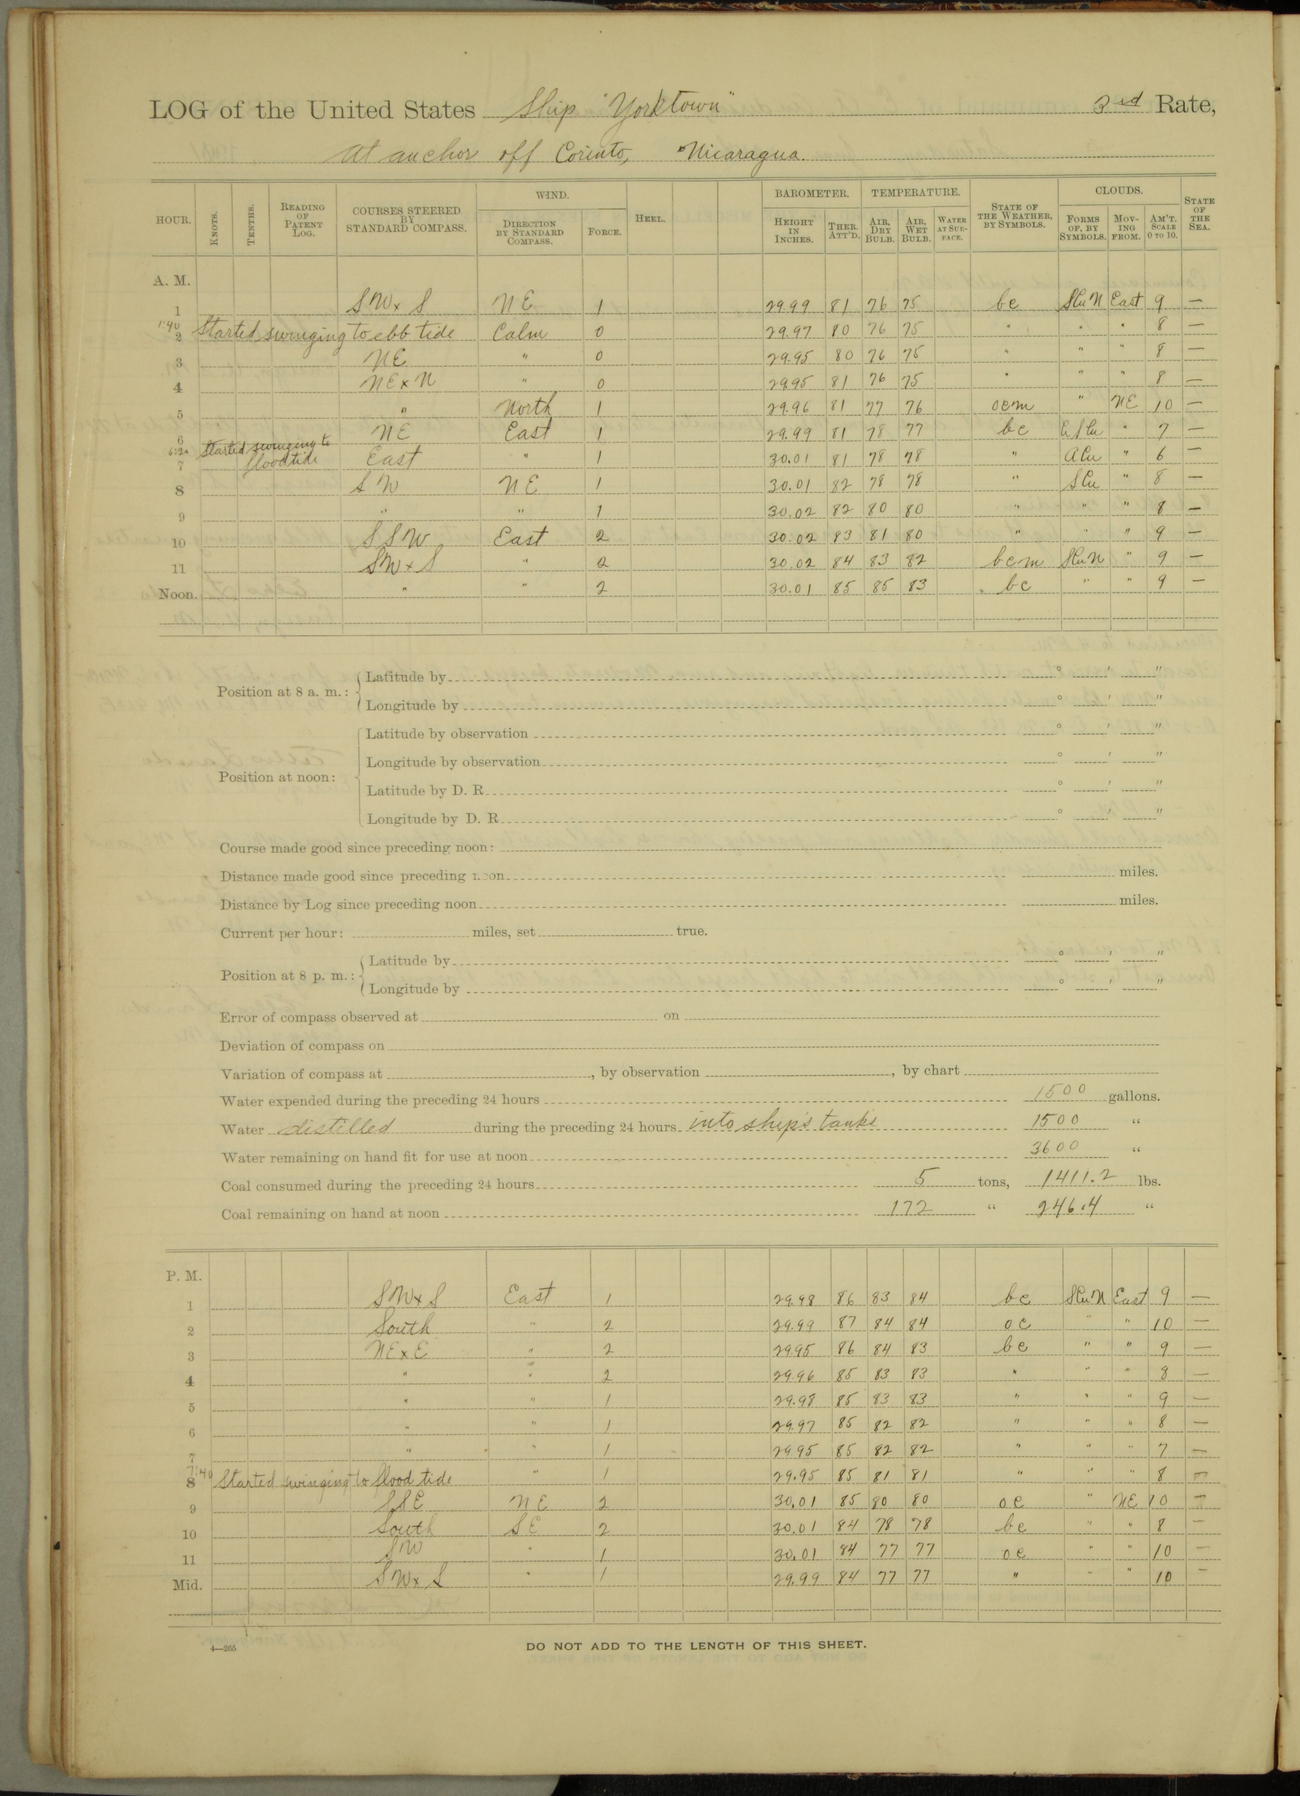 LOG of the United States Ship "Yorktown" 3rd Rate,
At anchor off Corinto, Nicaragua.
HOUR. KNOTS. TENTHS. READING OF PATENT LOG. COURSES STEERED BY STANDARD COMPASS. WIND. DIRECTION BY STANDARD COMPASS. FORCE. HEEL. BAROMETER. HEIGHT IN INCHES. THER. ATT'D. TEMPERATURE. AIR, DRY BULB. AIR, WET BULB. WATER AT SURFACE. STATE OF THE WEATHER, BY SYMBOLS. CLOUDS. FORMS OF, BY SYMBOLS. MOVING FROM. AM'T. SCALE 0 TO 10. STATE OF THE SEA.
A. M.
1 SWxS NE 1 29.99 81 76 75 bc SCuN East 9 —
1:40 2 Started swinging to ebb tide Calm 0 29.97 80 76 75 " " " 8 —
3 NE " 0 29.95 80 76 75 " " " 8 —
4 NExN " 0 29.95 81 76 75 " " " 8 —
5 " North 1 29.96 81 77 76 ocm " NE 10 —
6 NE East 1 29.99 81 78 77 bc " 7 —
Started swinging to flood tide
7 East " 1 30.01 81 78 78 " ACu " 6 —
8 SW NE 1 30.01 82 78 78 " SCu " 8 —
9 " " 1 30.02 82 80 80 " " " 8 —
10 SSW East 2 30.02 83 81 80 " " " 9 —
11 SWxS " 2 30.02 84 83 82 bcm SCuN " 9 —
Noon. " " 2 30.01 85 85 83 bc " " 9 —
Position at 8 a. m.: Latitude by ° ' "
Longitude by ° ' "
Position at noon: Latitude by observation ° ' "
Longitude by observation ° ' "
Latitude by D. R. ° ' "
Longitude by D. R. ° ' "
Course made good since preceding noon:
Distance made good since preceding noon miles.
Distance by Log since preceding noon miles.
Current per hour: miles, set true.
Position at 8 p. m.: Latitude by ° ' "
Longitude by ° ' "
Error of compass observed at on
Deviation of compass on
Variation of compass at , by observation , by chart
Water expended during the preceding 24 hours 1500 gallons.
Water distilled during the preceding 24 hours into ship's tanks 1500 "
Water remaining on hand fit for use at noon 3600 "
Coal consumed during the preceding 24 hours 5 tons, 1411.2 lbs.
Coal remaining on hand at noon 172 " 246.4 "
P. M.
1 SWxS East 1 29.98 86 83 84 bc SCuN East 9 —
2 South " 2 29.99 87 84 84 oc " " 10 —
3 NExE " 2 29.95 86 84 83 bc " " 9 —
4 " " 2 29.96 85 83 83 " " " 8 —
5 " " 1 29.98 85 83 83 " " " 9 —
6 " " 1 29.97 85 82 82 " " " 8 —
7 " " 1 29.95 85 82 82 " " " 7 —
7:40 8 Started swinging to flood tide " 1 29.95 85 81 81 " " " 8 —
9 SSE NE 2 30.01 85 80 80 oc " NE 10 —
10 South SE 2 30.01 84 78 78 bc " " 8 —
11 SW " 1 30.01 84 77 77 oc " " 10 —
Mid. SWxS " 1 29.99 84 77 77 " " " 10 —
4—265 DO NOT ADD TO THE LENGTH OF THIS SHEET.